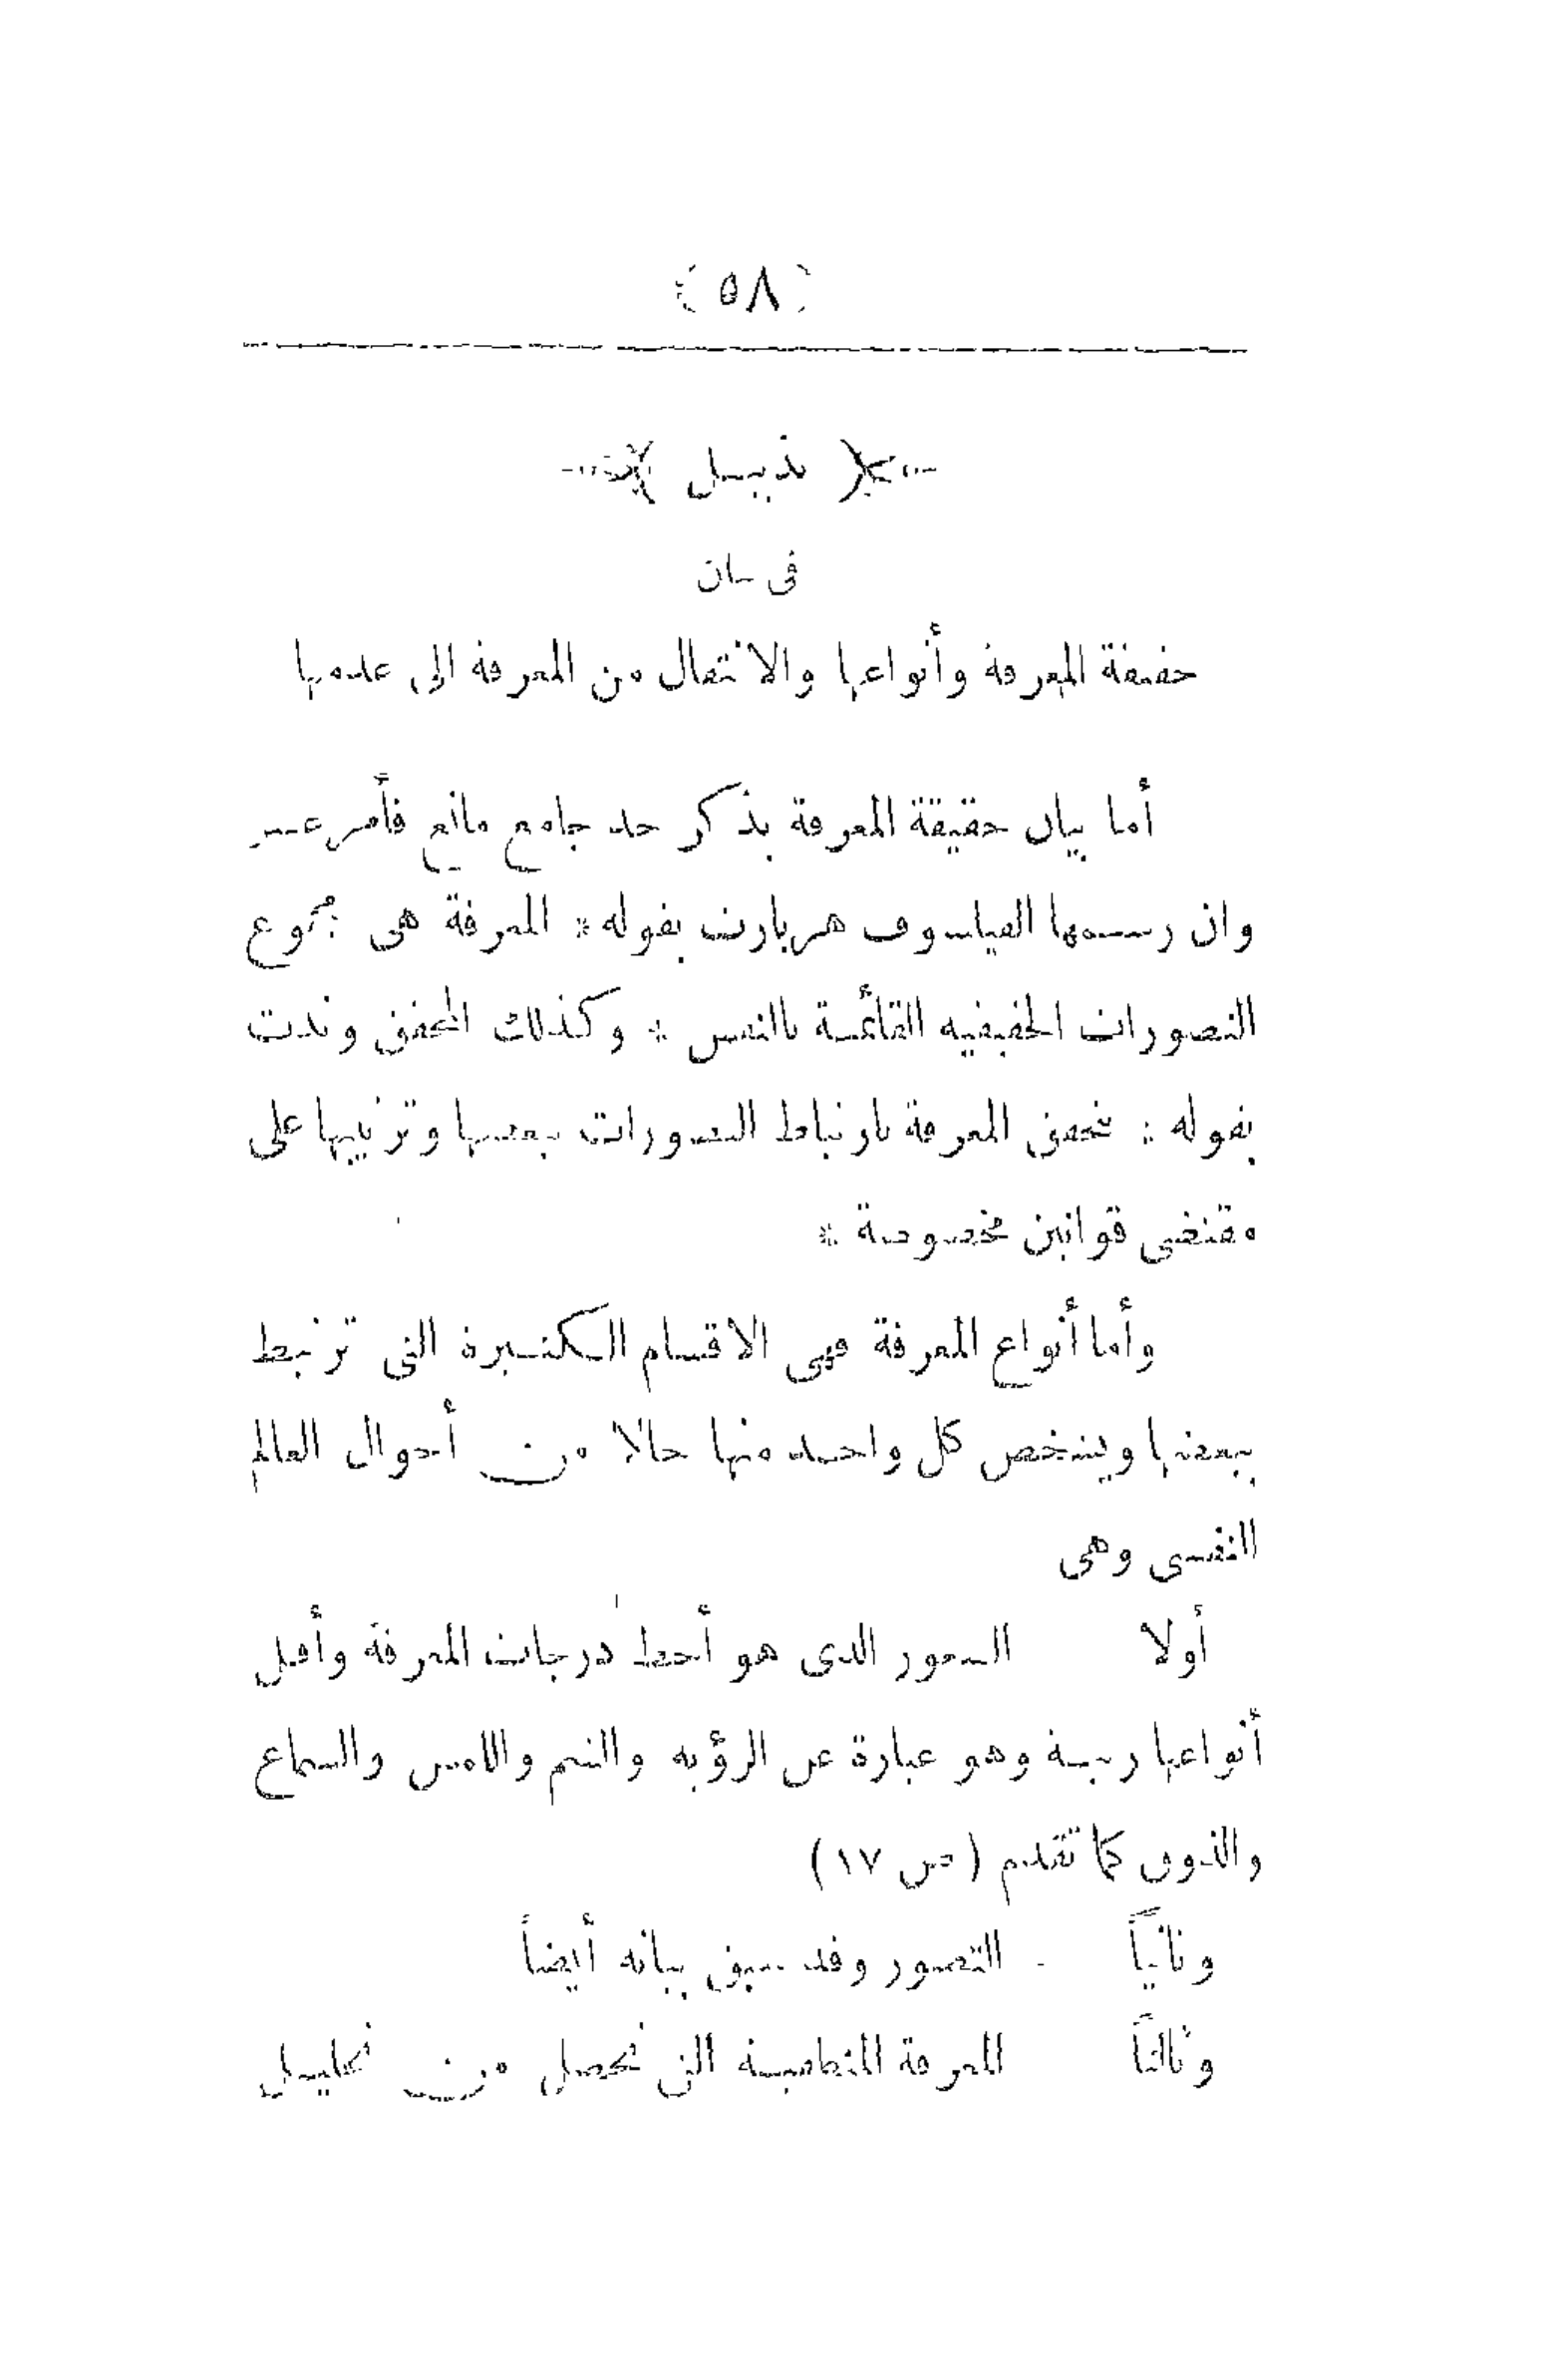 (٥٨)
تذييل
فى بيان
حقيقة المعرفة وأنواعها والانتقال من المعرفة الى عدمها
أما بيان حقيقة المعرفة بذكر حد جامع مانع فأمر عسر
وان رسمها الفيلسوف هربارت بقوله * المعرفة هى مجموع
التصورات الحقيقية القائمة بالنفس * وكذلك المحقق وندت
بقوله * تتحقق المعرفة بارتباط التصورات ببعضها وترتيبها على
مقتضى قوانين مخصوصة *
وأما أنواع المعرفة فهى الاقسام الكثيرة التى ترتبط
ببعضها ويشخص كل واحد منها حالا من أحوال العالم
النفسى وهى
أولا الشعور الذى هو أحط درجات المعرفة وأقل
أنواعها رتبة وهو عبارة عن الرؤية والشم واللمس والسماع
والذوق كما تقدم (ص ١٧)
وثانياً التصور وقد سبق بيانه أيضاً
وثالثاً المعرفة المنطقية التى تحصل من تحليل